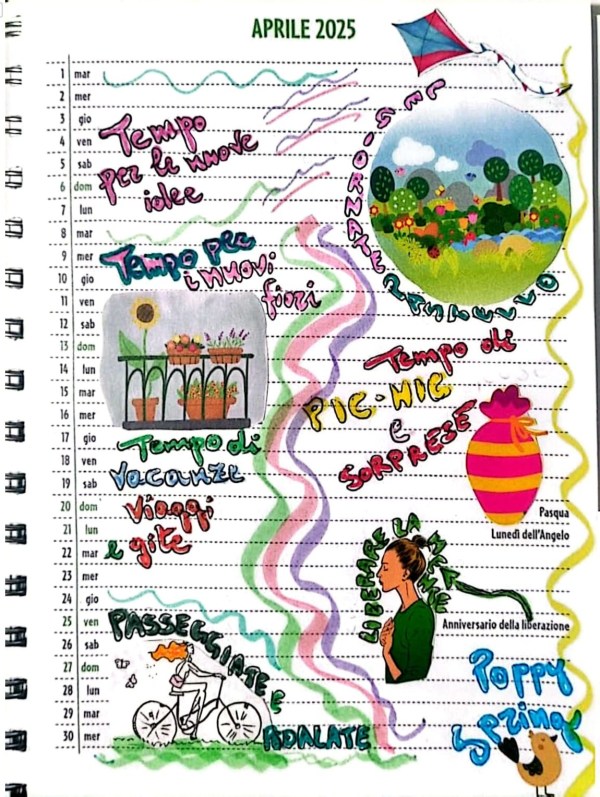 APRILE 2025
1 mar
2 mer
3 gio
4 ven
5 sab
6 dom
7 lun
8 mar
9 mer
10 gio
11 ven
12 sab
13 dom
14 lun
15 mar
16 mer
17 gio
18 ven
19 sab
20 dom
21 lun
22 mar
23 mer
24 gio
25 ven
26 sab
27 dom
28 lun
29 mar
30 mer
Tempo
per le nuove
idee
GIORNATE
Tempo per
i nuovi
fiori
Tempo di
PIC-NIC
e
SORPRESE
Tempo di
vacanze
viaggi
e gite
Pasqua
Lunedì dell'Angelo
LIBERARE LA
Anniversario della liberazione
PASSEGGIATE E
Poppy
Spring